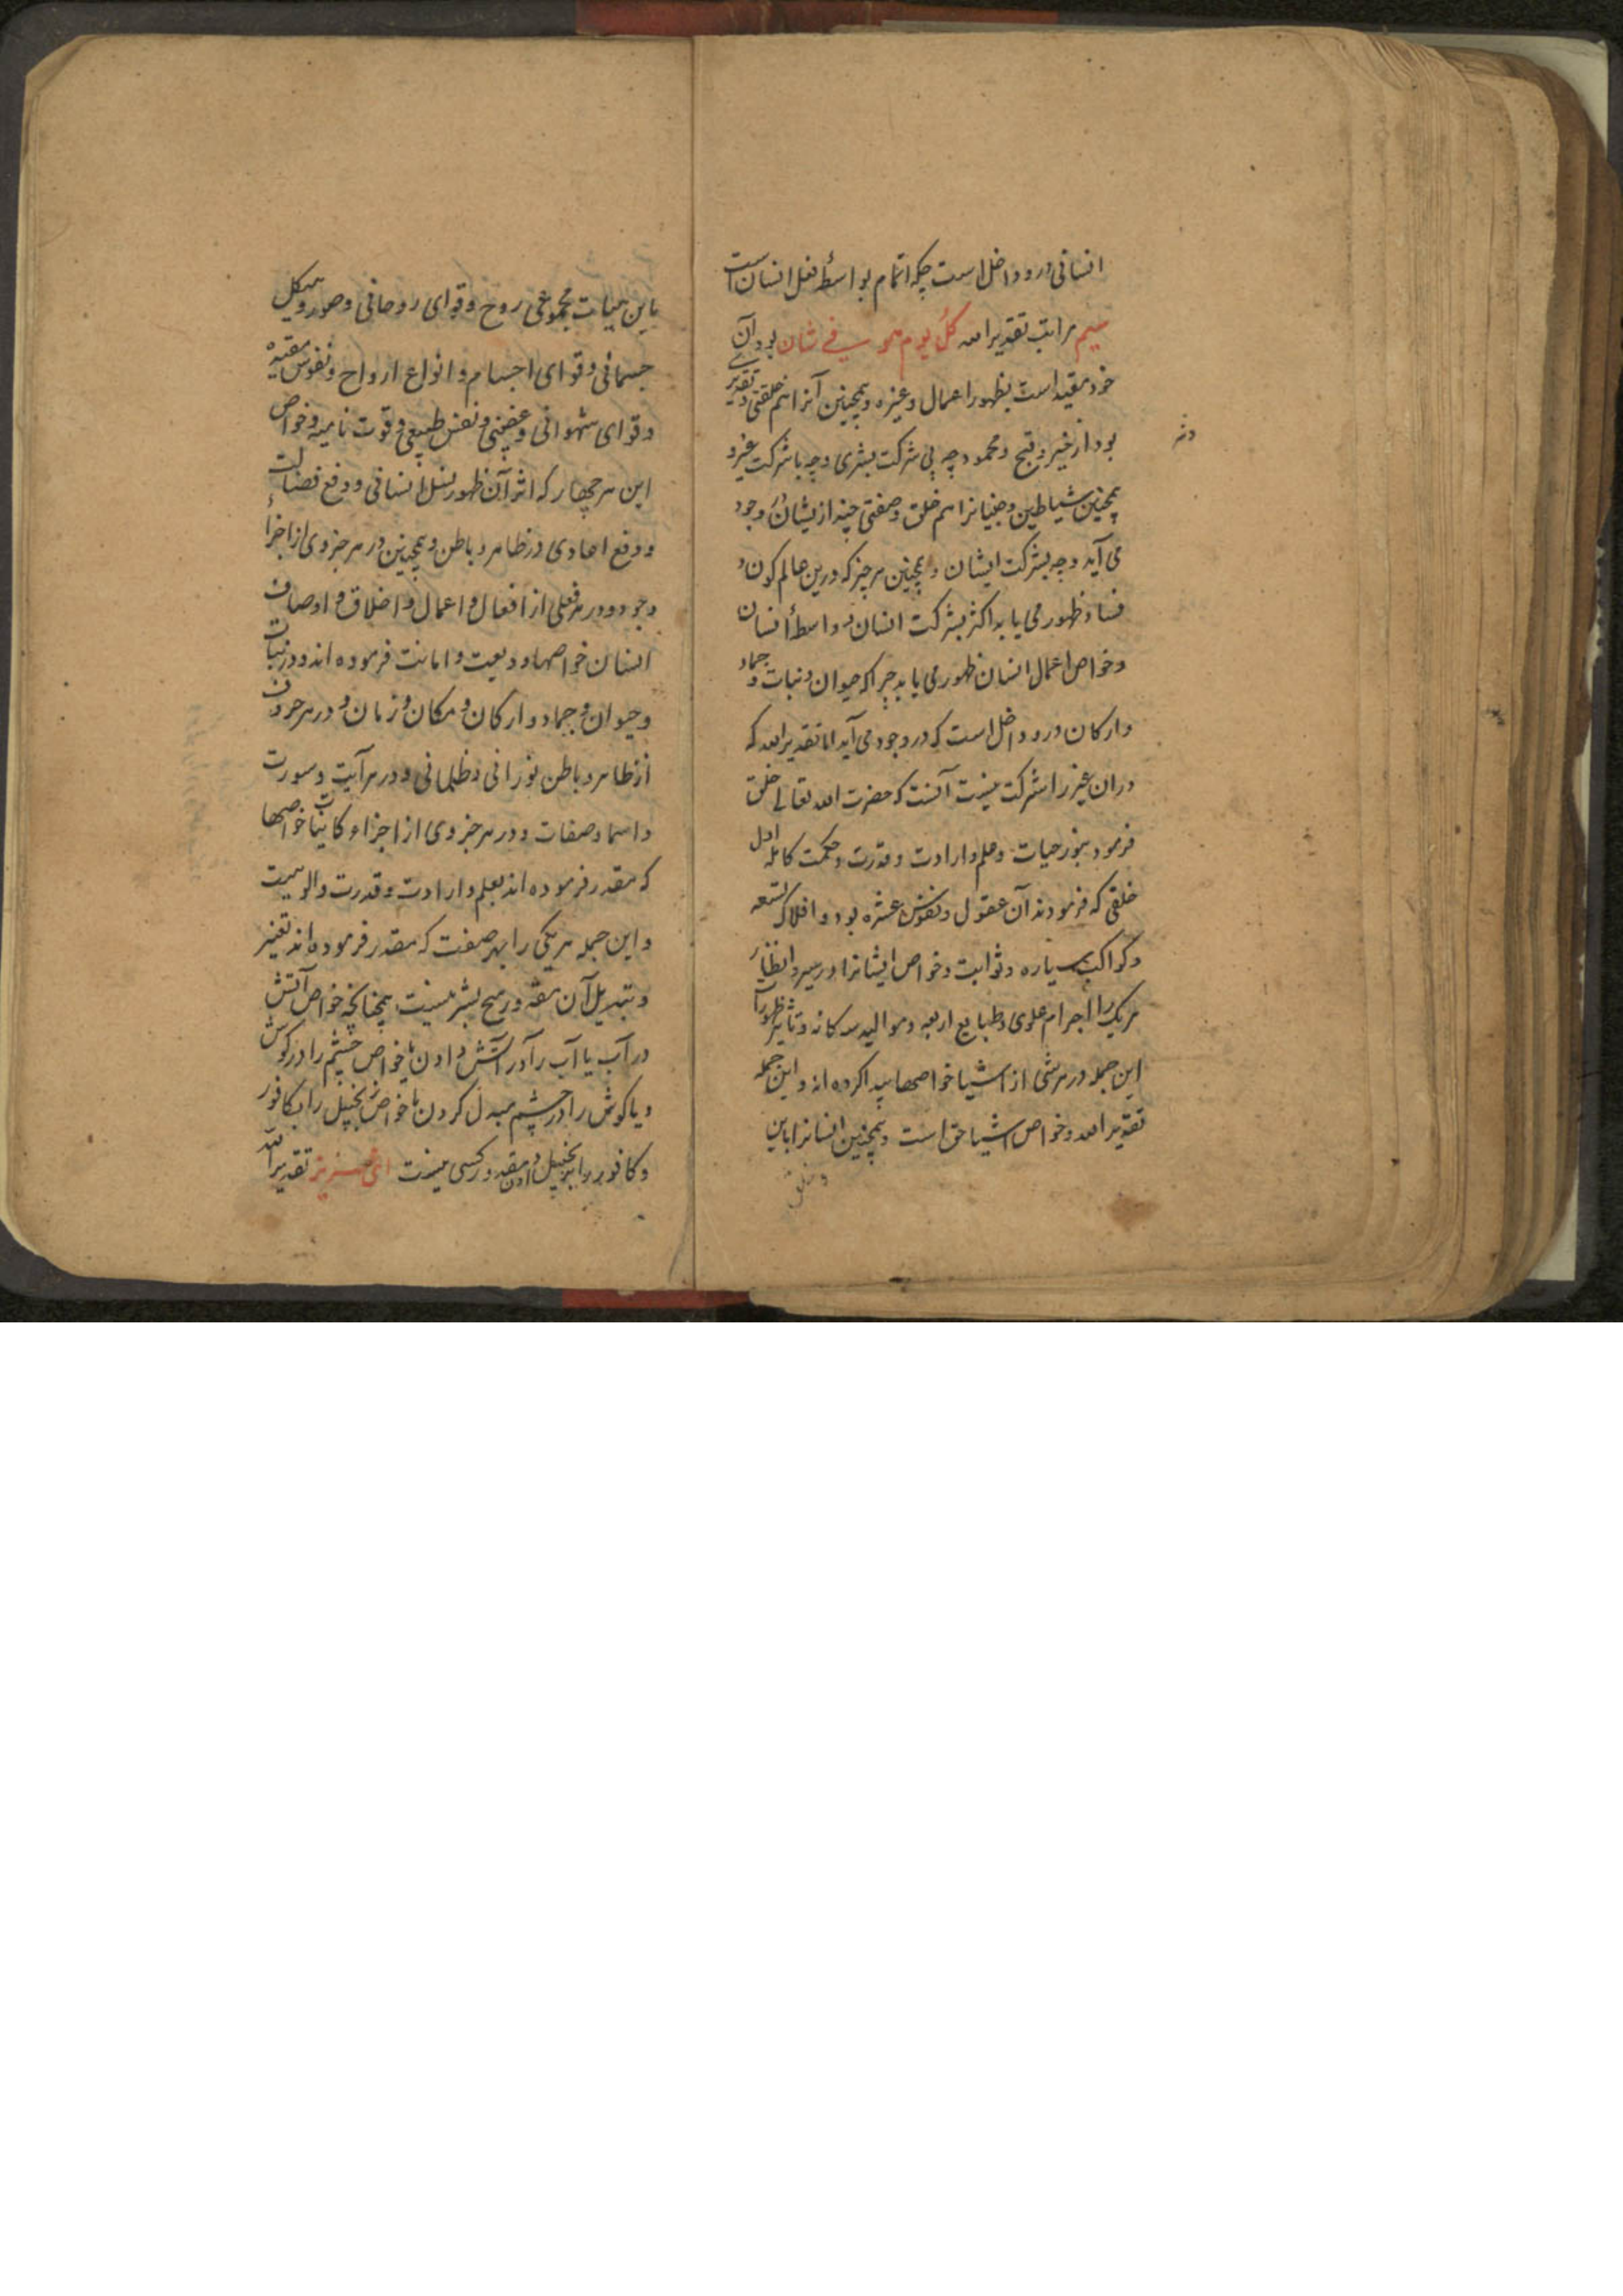 انسانی درو داخل است چه اتمام بواسطهٔ فعل انسان است
سیم مراتب تقدیر الله کل یوم هو فی شان بود آن
خود مقید است بظهور اعمال و غیره و همچنین آنرا هم خلقتی و تقدیری
بود از خیر و قبح و محمود چه بی شرکت بشری و چه با شرکت غیر و
همچنین شیاطین و جنیانرا هم خلق و صفتی چند ازیشان وجود
می آید و چه بشرکت ایشان و همچنین هر چیز که درین عالم کون و
فساد ظهور می یابد اکثر بشرکت انسان و واسطهٔ انسان
و خواص اعمال انسان ظهور می یابد چرا که حیوان و نبات و جماد
و ارکان درو داخل است که در وجود می آید اما تقدیر الله که
دران غیر را شرکت نیست آنست که حضرت الله تعالی خلق
فرمود بنور حیات و علم و ارادت و قدرت و حکمت کامله اول
خلقی که فرمودند آن عقول و نفوس عشره بود و افلاک تسعه
و کواکب سیاره و ثوابت و خواص ایشانرا در سیر و انظار
هر یک را اجرام علوی و طبایع اربعه و موالید سه کانه و تاثیر ظهور آن
این جمله در هر شی از اشیا خواصها پیدا کرده اند و این جمله
تقدیر الله و خواص اشیا حق است و همچنین انسانرا باین
باین هیات مجموعی روح و قوای روحانی و صور و هیکل
جسمانی و قوای اجسام و انواع ارواح و نفوس مقیده
و قوای شهوانی و غضبی و نفس طبیعی و قوت نامیه و خواص
این هر چهار که اثر آن ظهور نسل انسانی و دفع فضلات
و دفع اعادی در ظاهر و باطن و همچنین در هر جزوی از اجزاء
وجود و در هر فعلی از افعال و اعمال و اخلاق و اوصاف
انسان خواصها ودیعت و امانت فرموده اند و در نبات
و حیوان و جماد و ارکان و مکان و زمان و در هر حرف
از ظاهر و باطن نورانی و ظلمانی و در هر آیت و سورت
و اسما و صفات و در هر جزوی از اجزاء کاینات خواصها
که مقدر فرموده اند بعلم و ارادت و قدرت والوهیت
و این جمله هر یکی را بهر صفت که مقدر فرموده اند تغییر
و تبدیل آن مقدور هیچ بشر نیست همچنانکه خواص آتش
در آب یا آب را در آتش دادن یا خواص چشم را در کوش
و یا کوش را در چشم مبدل کردن یا خواص زنجبیل را بکافور
و کافور را بزنجبیل دادن مقدور کسی نیست ای عزیز تقدیر الله